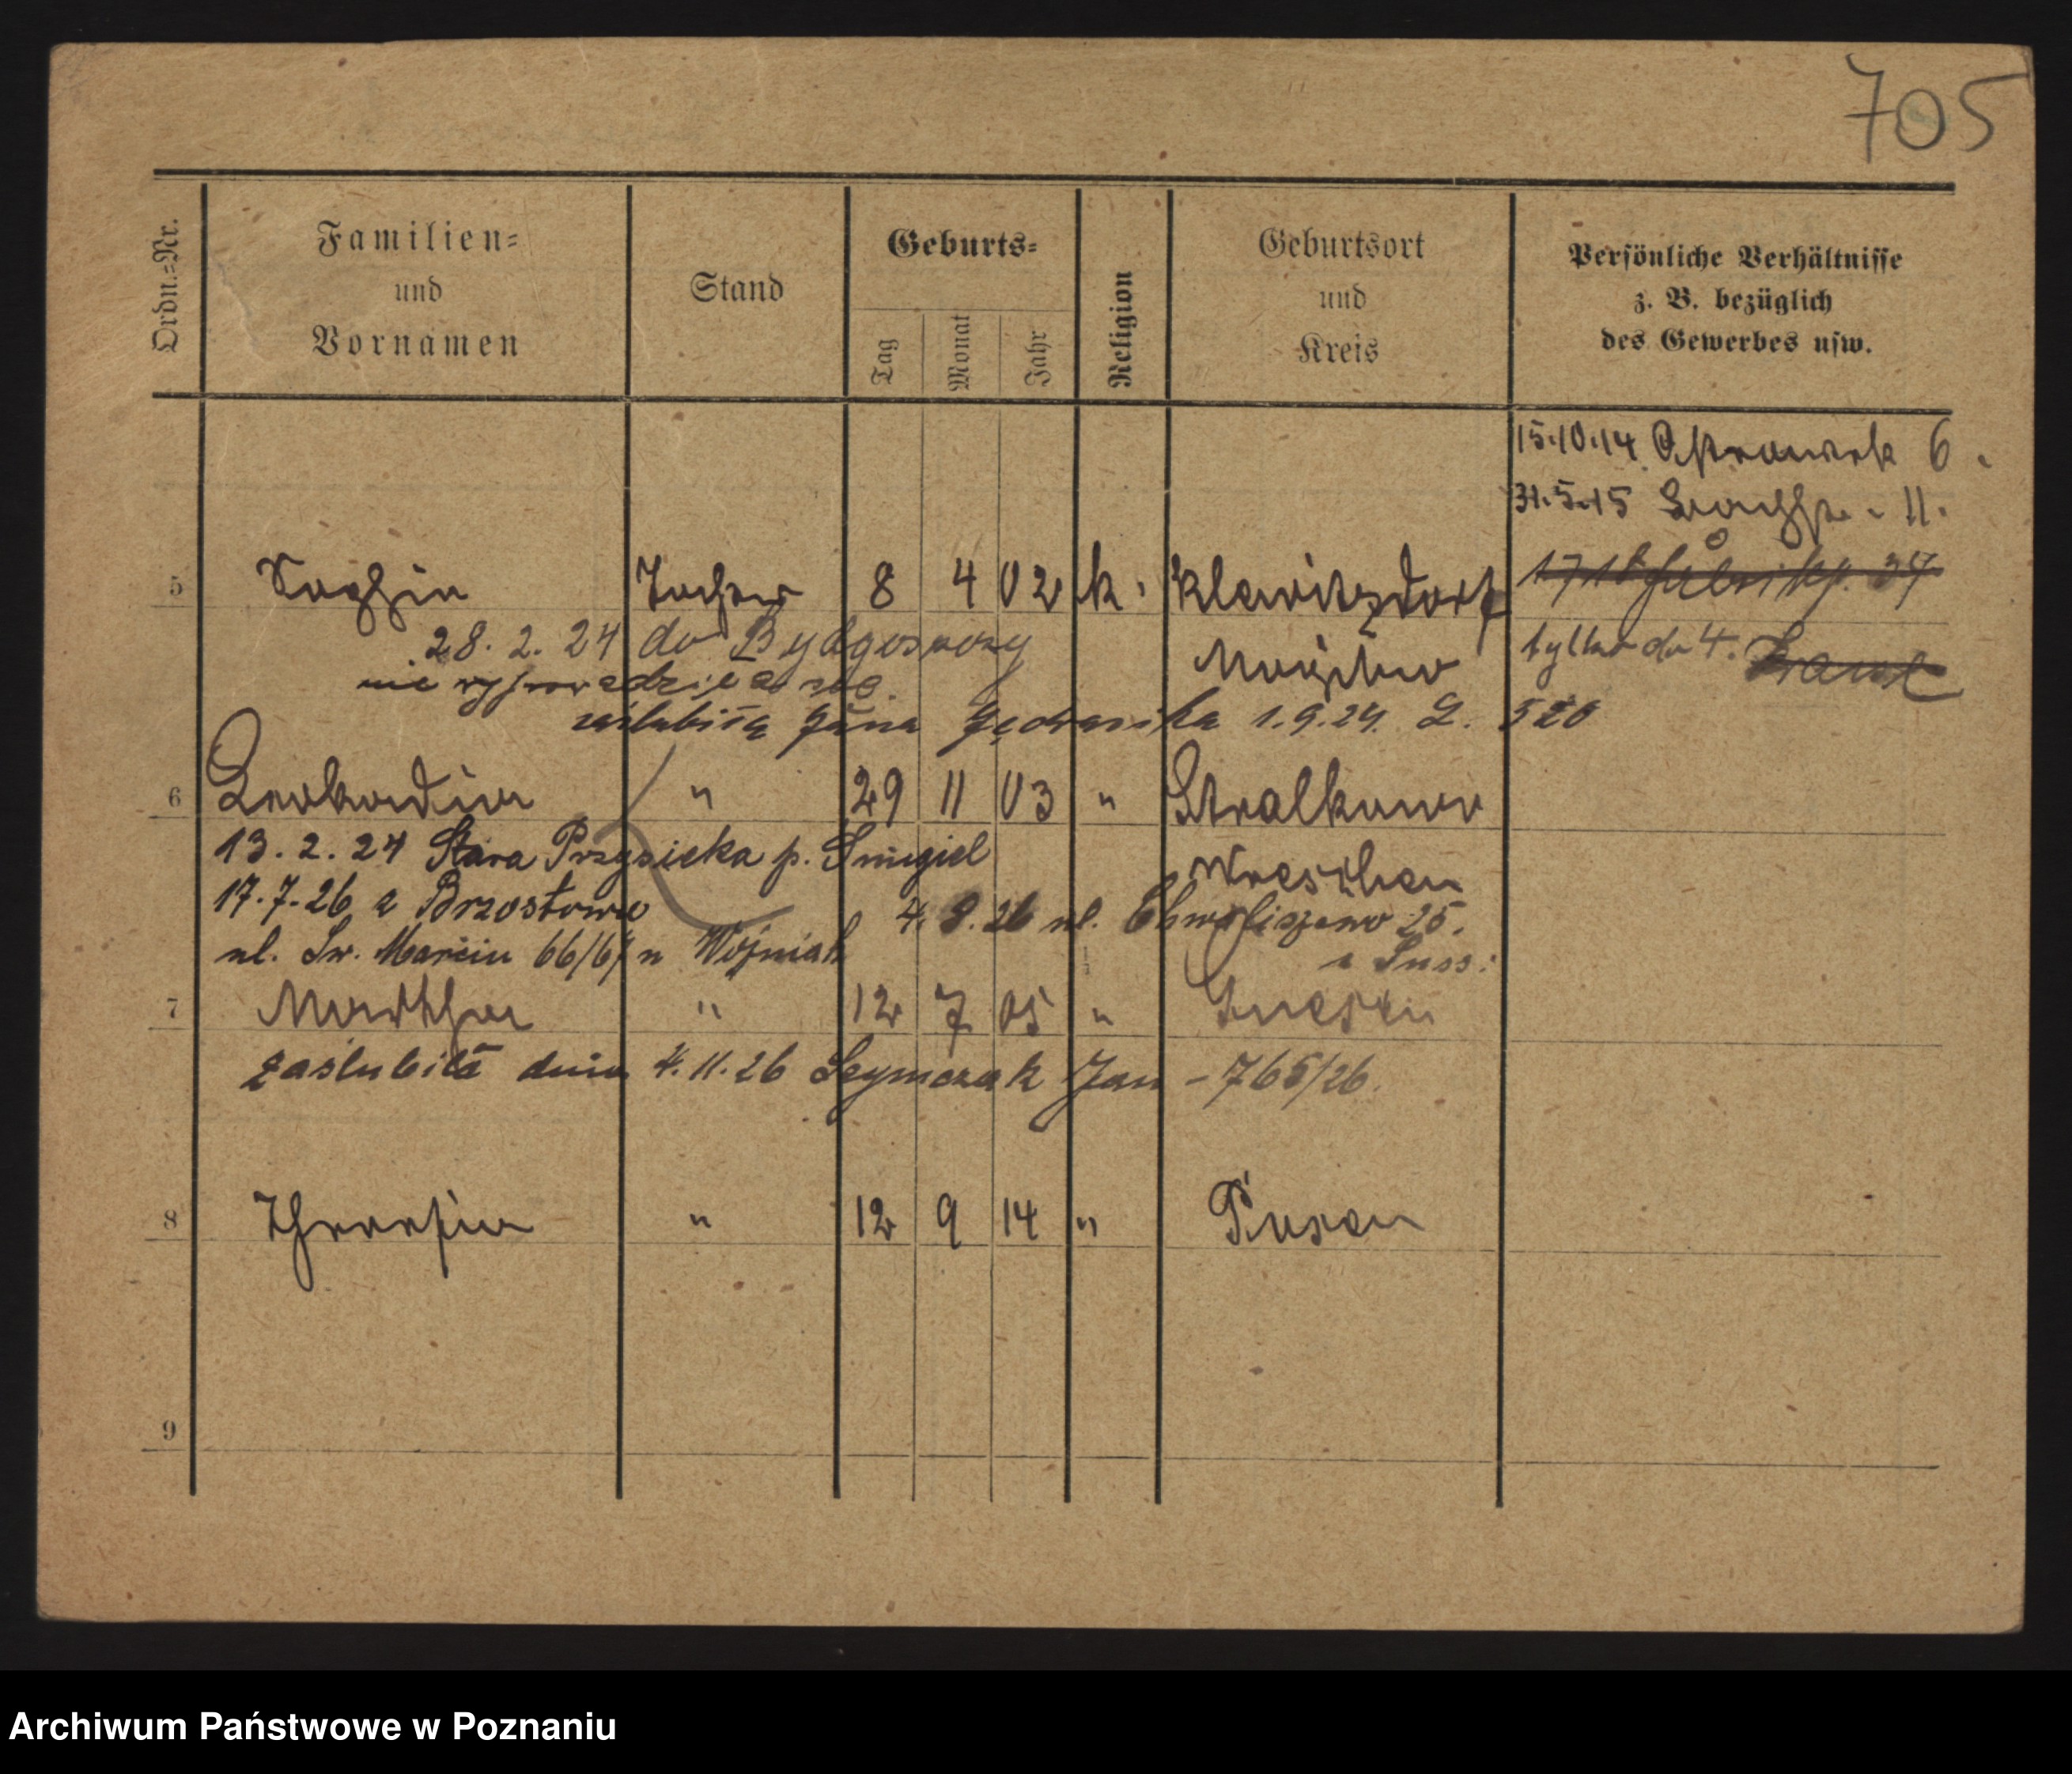 705
Ordn.=Nr.
Familien=
und
Vornamen
Stand
Geburts=
Tag
Monat
Jahr
Religion
Geburtsort
und
Kreis
Persönliche Verhältnisse
z. B. bezüglich
des Gewerbes usw.
15.10.14 Ostrowek 6.
31.5.15 11.
5 Sophie Tochter 8 4 02 k. Klawitzdorf 34
28. 2. 24 do Bydgoszczy
tylko do 4.
nie wyprowadziła się.
zaślubiła Jana 1.9.24. L. 520
6 Leokardia " 29 11 03 " Stralkowo
13. 2. 24 Stara Przysieka p. Śmigiel
Wreschen
17.7.26 z Brzostowo 4. 8. 26 ul. Chwaliszewo 25.
ul. Św. Marcin 66/67 u Woźniak
7 Martha " 12 7 05 " Gnesen
zaślubiła dnia 4.11.26 Szymczak Jan - 765/26.
8 Theresia " 12 9 14 " Posen
9
Archiwum Państwowe w Poznaniu